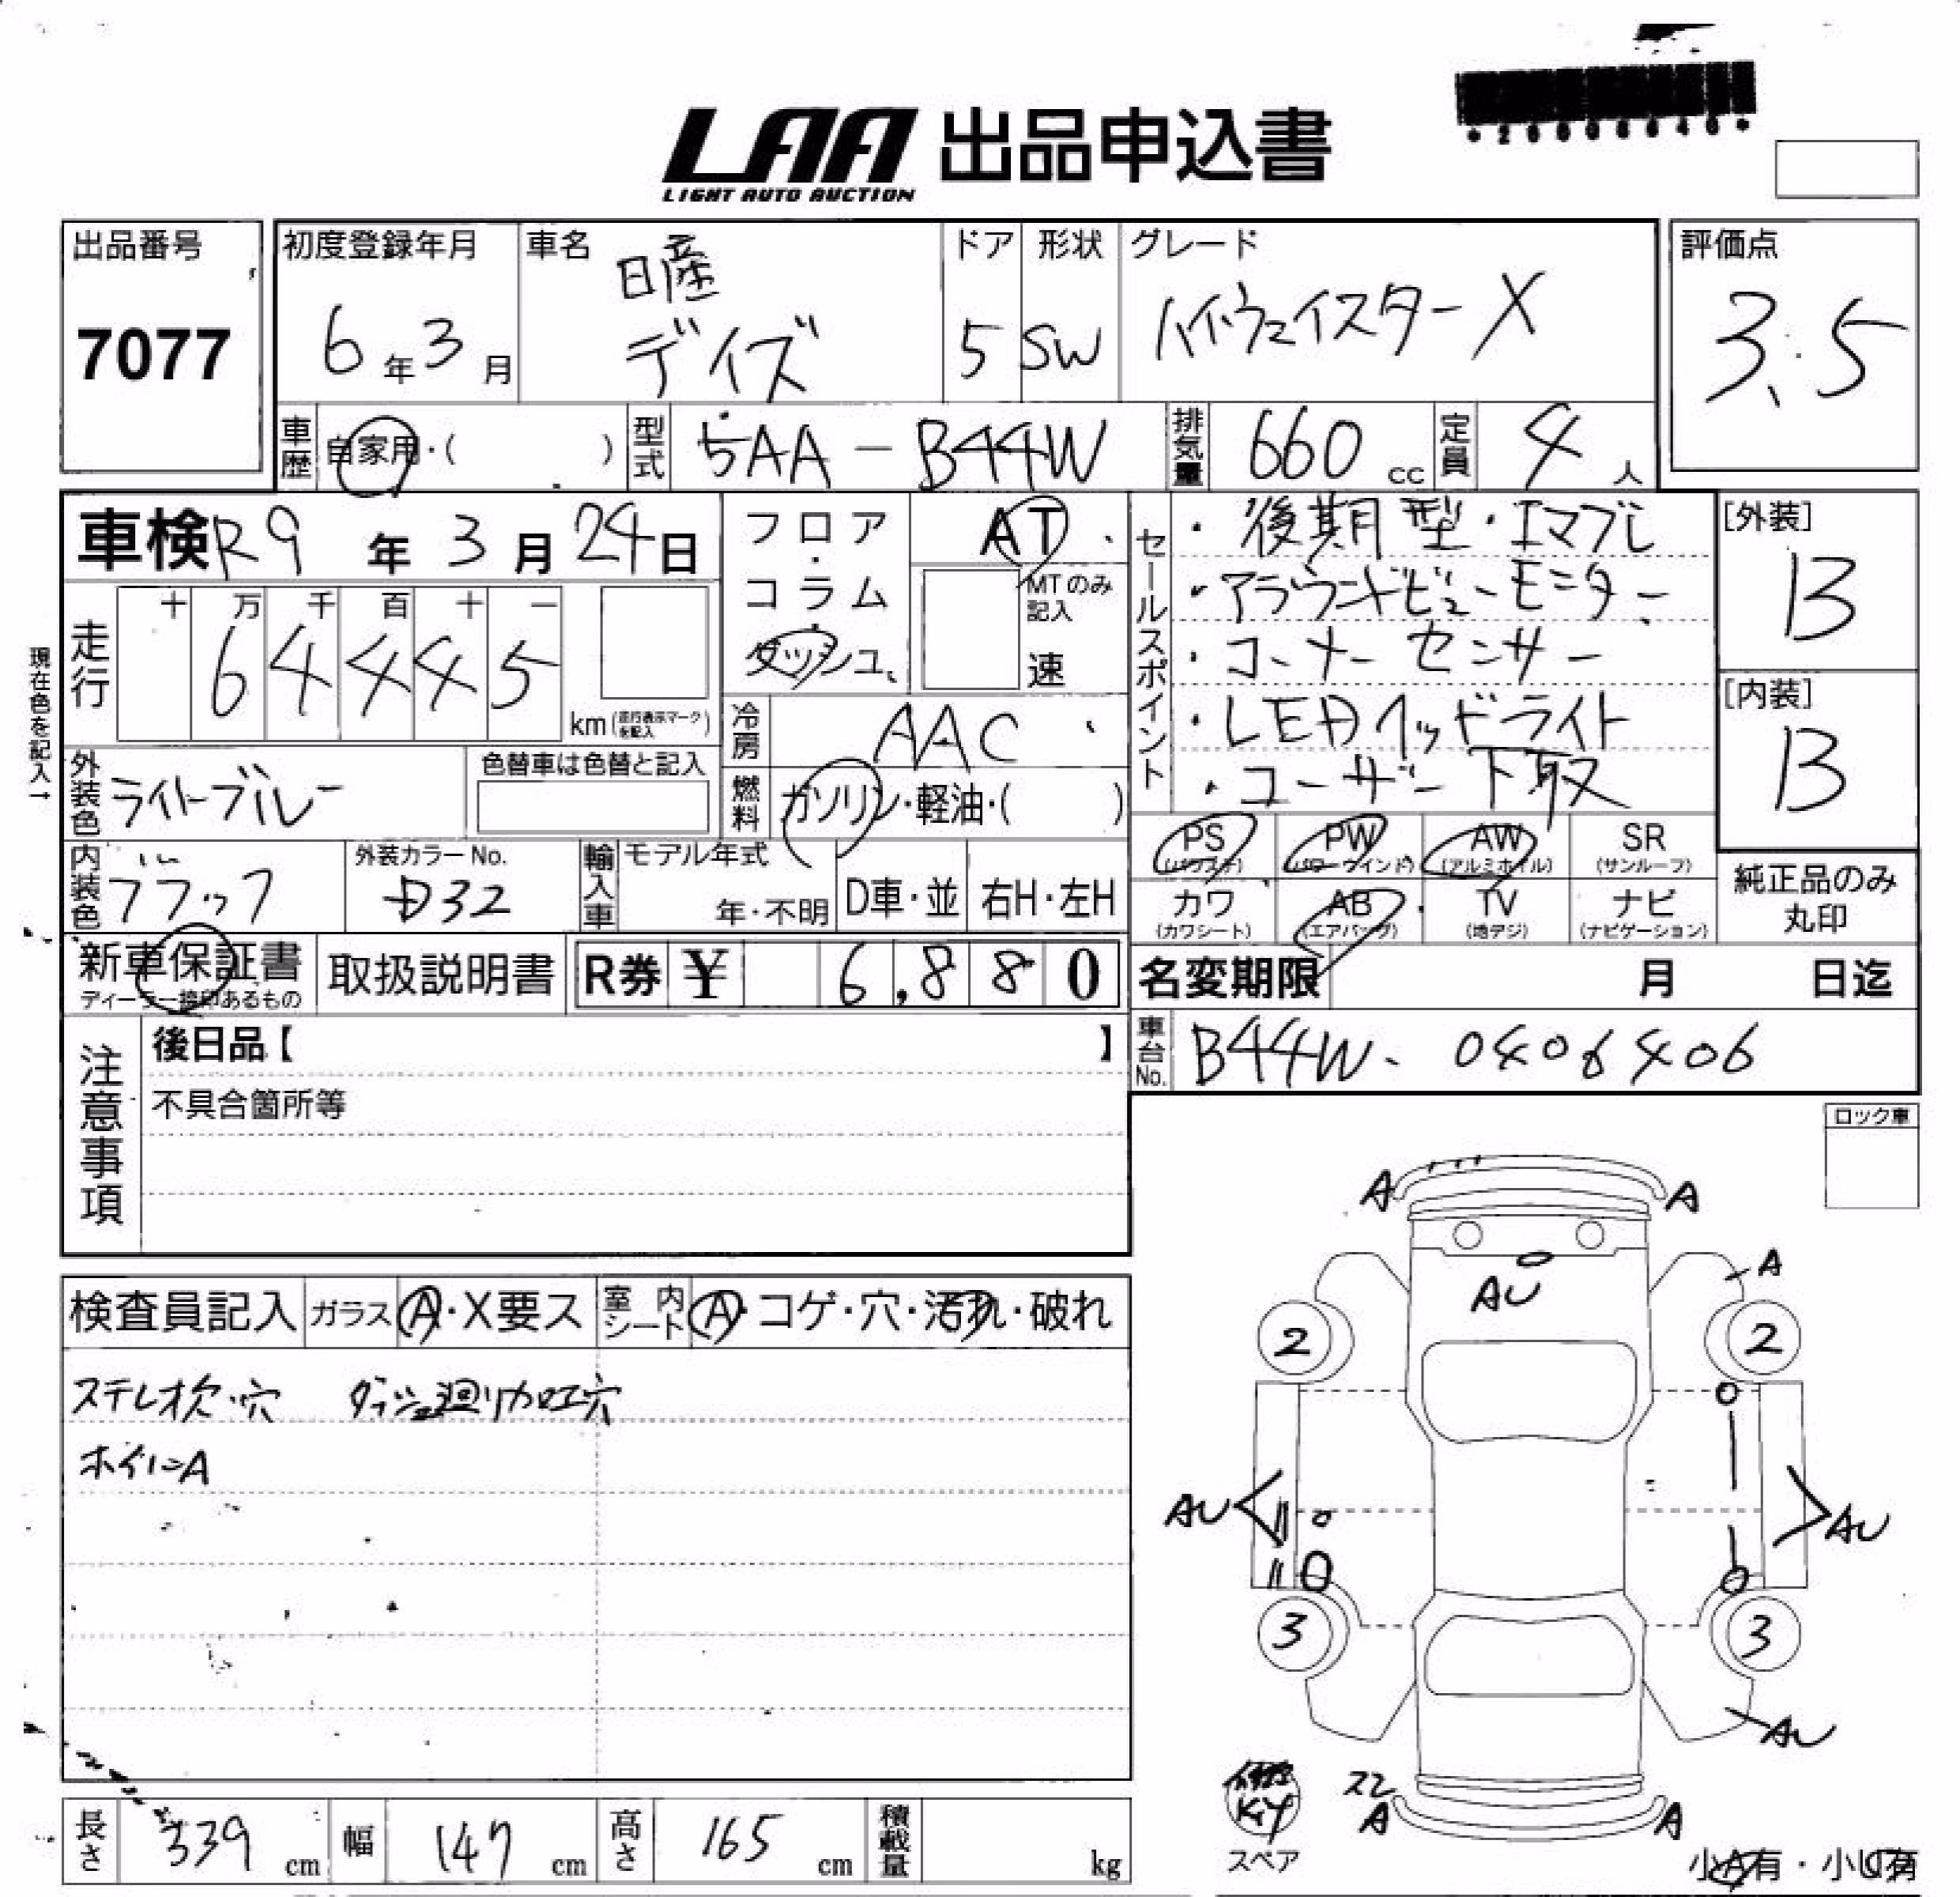 LAA 出品申込書
LIGHT AUTO AUCTION
出品番号
7077
初度登録年月
6年3月
車名
日産
デイズ
ドア
5
形状
SW
グレード
ハイウェイスターX
評価点
3.5
車歴 自家用・( )
型式 5AA-B44W
排気量 660 cc
定員 4人
車検 R9年3月24日
フロア・コラム・ダッシュ
AT
MTのみ記入
速
セールスポイント
・後期型・エマブレ
・アラウンドビューモニター
・コーナーセンサー
・LEDヘッドライト
・ユーザー下取
[外装]
B
[内装]
B
現在色を記入→
走行
十 万 千 百 十 一
6 4 4 4 5
km(走行表示マークを記入)
冷房 AAC
外装色 ライトブルー
色替車は色替と記入
燃料 ガソリン・軽油・( )
内装色 ブラック
外装カラーNo.
D32
輸入車 モデル年式
年・不明
D車・並
右H・左H
PS (パワステ)
PW (パワーウインド)
AW (アルミホイル)
SR (サンルーフ)
カワ (カワシート)
AB (エアバッグ)
TV (地デジ)
ナビ (ナビゲーション)
純正品のみ
丸印
新車保証書
ディーラー捺印あるもの
取扱説明書
R券 ¥ 6,880
名変期限 月 日迄
車台No. B44W-0406406
注意事項
後日品【 】
不具合箇所等
ロック車
検査員記入
ガラス A・X要ス
室内シート A・コゲ・穴・汚れ・破れ
ステレオ欠・穴 ダッシュ廻り加工穴
ホイルニA
A A
A
AU
2 2
AU AU
3 3
AU
スレ
A A
スペア
小A有・小U有
長さ 339 cm
幅 147 cm
高さ 165 cm
積載量 kg